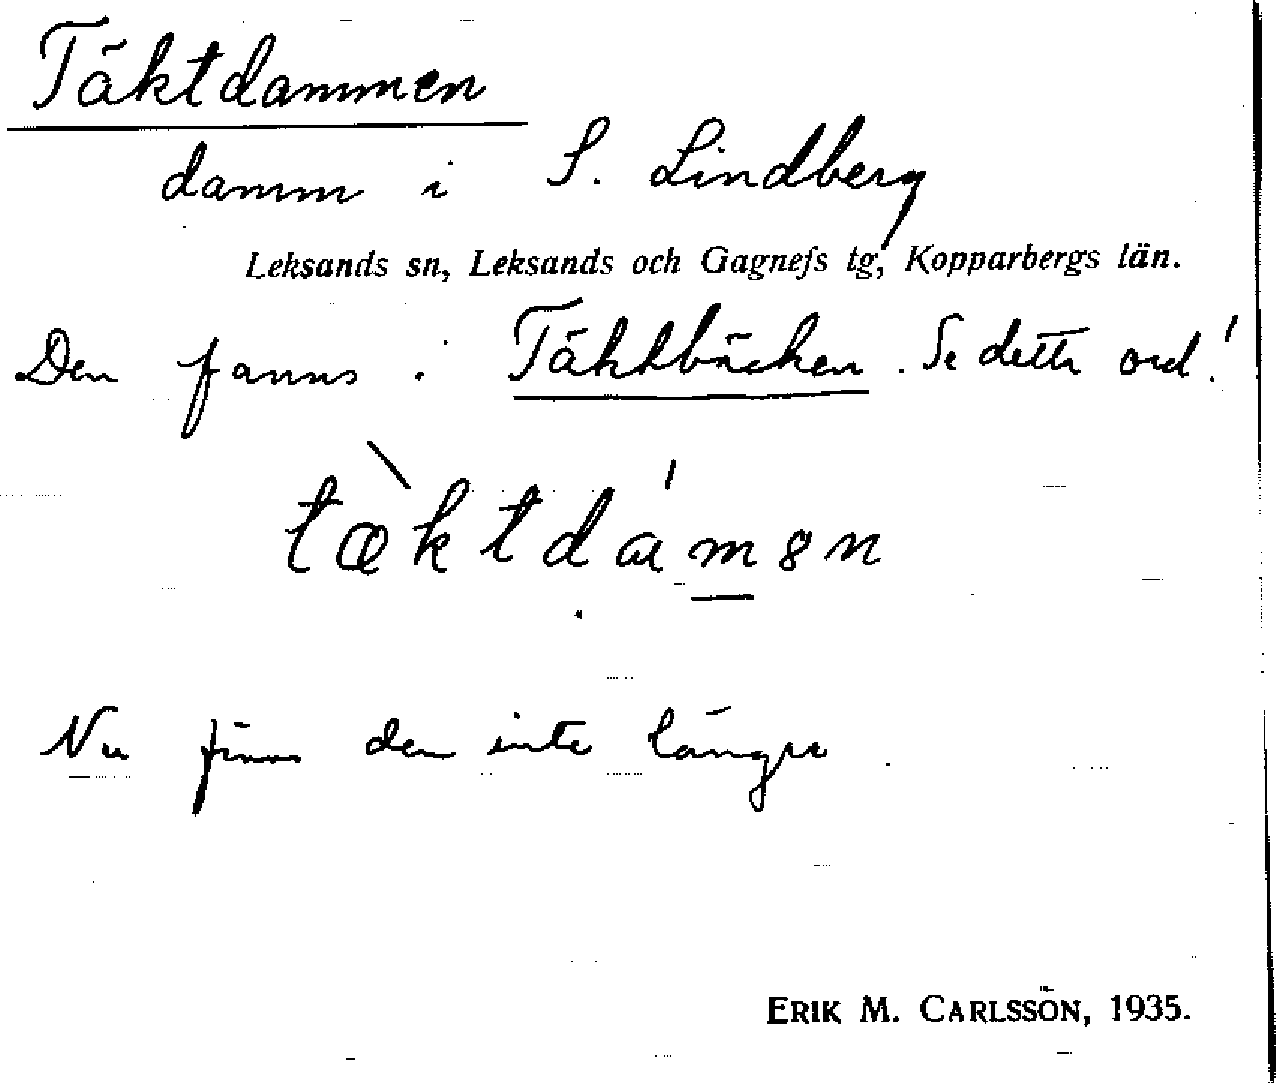 Täktdammen
damm i S. Lindberg
Leksands sn, Leksands och Gagnefs tg, Kopparbergs län.
Den fanns i Täktbäcken. Se detta ord!
tæ̀ktdám̲ən
Nu finns den inte längre.
ERIK M. CARLSSON, 1935.